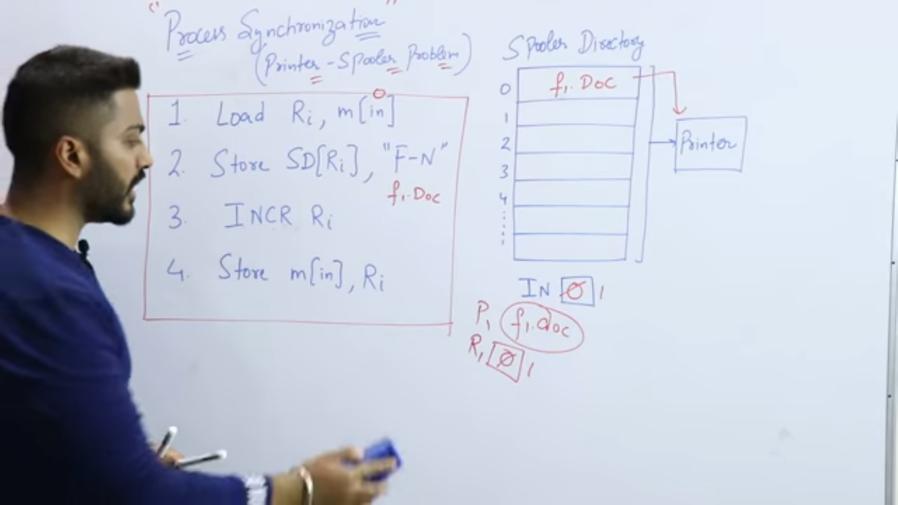 "Process Synchronization"
(Printer - Spooler Problem)
1. Load Ri, m[in]
0
2. Store SD[Ri], "F-N"
f1.Doc
3. INCR Ri
4. Store m[in], Ri
Spooler Directory
0 f1.Doc
1
2
3
4
Printer
IN 0 1
P1 f1.doc
R1 0 1